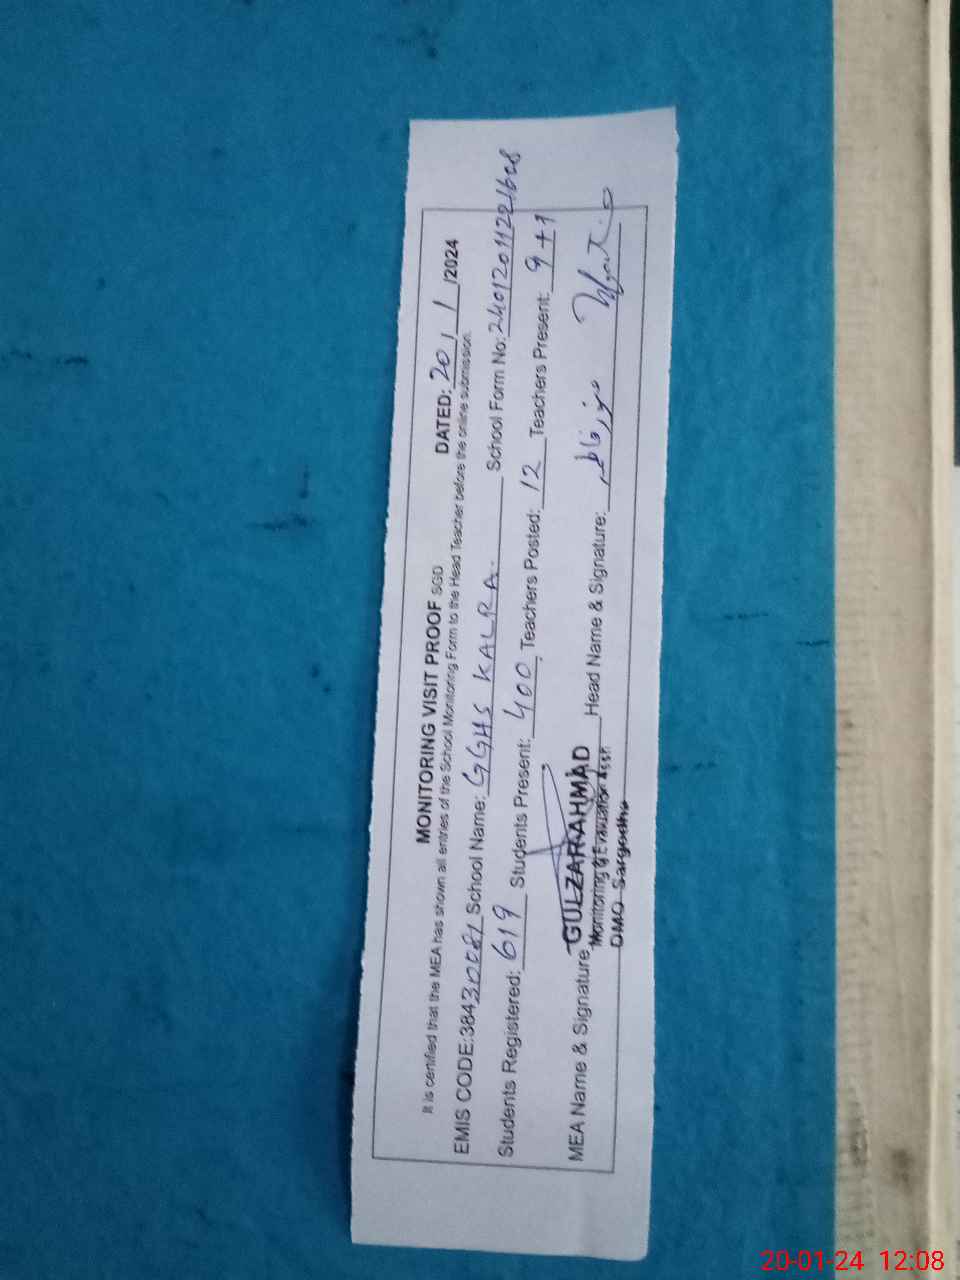 MONITORING VISIT PROOF SGD DATED: 20/1/2024
It is certified that the MEA has shown all entries of the School Monitoring Form to the Head Teacher before the online submission.
EMIS CODE:38430081 School Name: GGHS KALRA. School Form No:
Students Registered: 619 Students Present: 400 Teachers Posted: 12 Teachers Present: 9+1
MEA Name & Signature GULZAR AHMAD Head Name & Signature:
Monitoring & Evaluation Asstt
DMO Sargodha
20-01-24 12:08